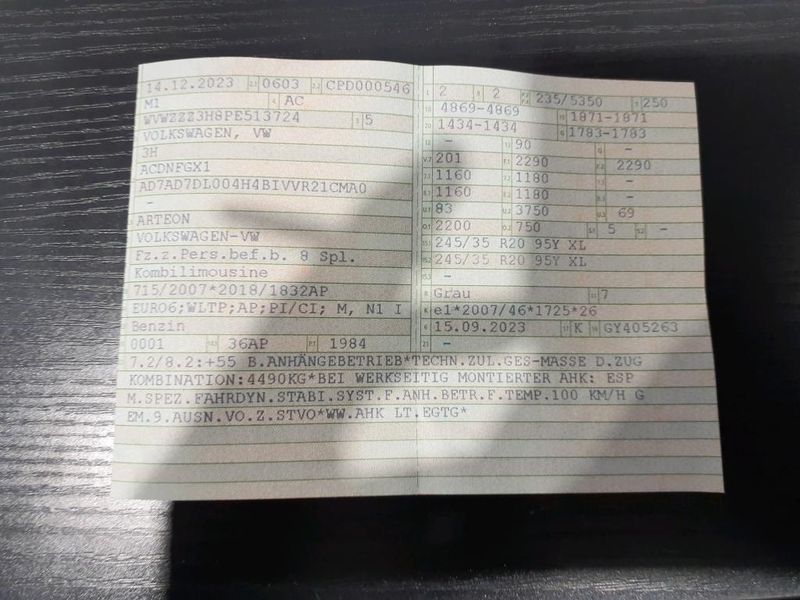 14.12.2023 2.1 0603 2.2 CPD000546
M1 4 AC
WVWZZZ3H8PE513724 3 5
VOLKSWAGEN, VW
3H
ACDNFGX1
AD7AD7DL004H4BIVVR21CMA0
-
ARTEON
VOLKSWAGEN-VW
Fz.z.Pers.bef.b. 8 Spl.
Kombilimousine
715/2007*2018/1832AP
EURO6;WLTP;AP;PI/CI; M, N1 I
Benzin
0001 36AP P.1 1984
L 2 9 2 235/5350 250
18 4869-4869 19 1871-1871
20 1434-1434 G 1783-1783
12 - 13 90 Q -
V.7 201 F.1 2290 F.2 2290
7.1 1160 7.2 1180 -
8.1 1160 8.2 1180 -
U.1 83 U.2 3750 U.3 69
O.1 2200 O.2 750 S.1 5 S.2 -
15.1 245/35 R20 95Y XL
15.2 245/35 R20 95Y XL
15.3 -
R Grau 11 7
K e1*2007/46*1725*26
6 15.09.2023 17 K 16 GY405263
21 -
7.2/8.2:+55 B.ANHÄNGEBETRIEB*TECHN.ZUL.GES-MASSE D.ZUG
KOMBINATION:4490KG*BEI WERKSEITIG MONTIERTER AHK: ESP
M.SPEZ.FAHRDYN.STABI.SYST.F.ANH.BETR.F.TEMP.100 KM/H G
EM.9.AUSN.VO.Z.STVO*WW.AHK LT.EGTG*